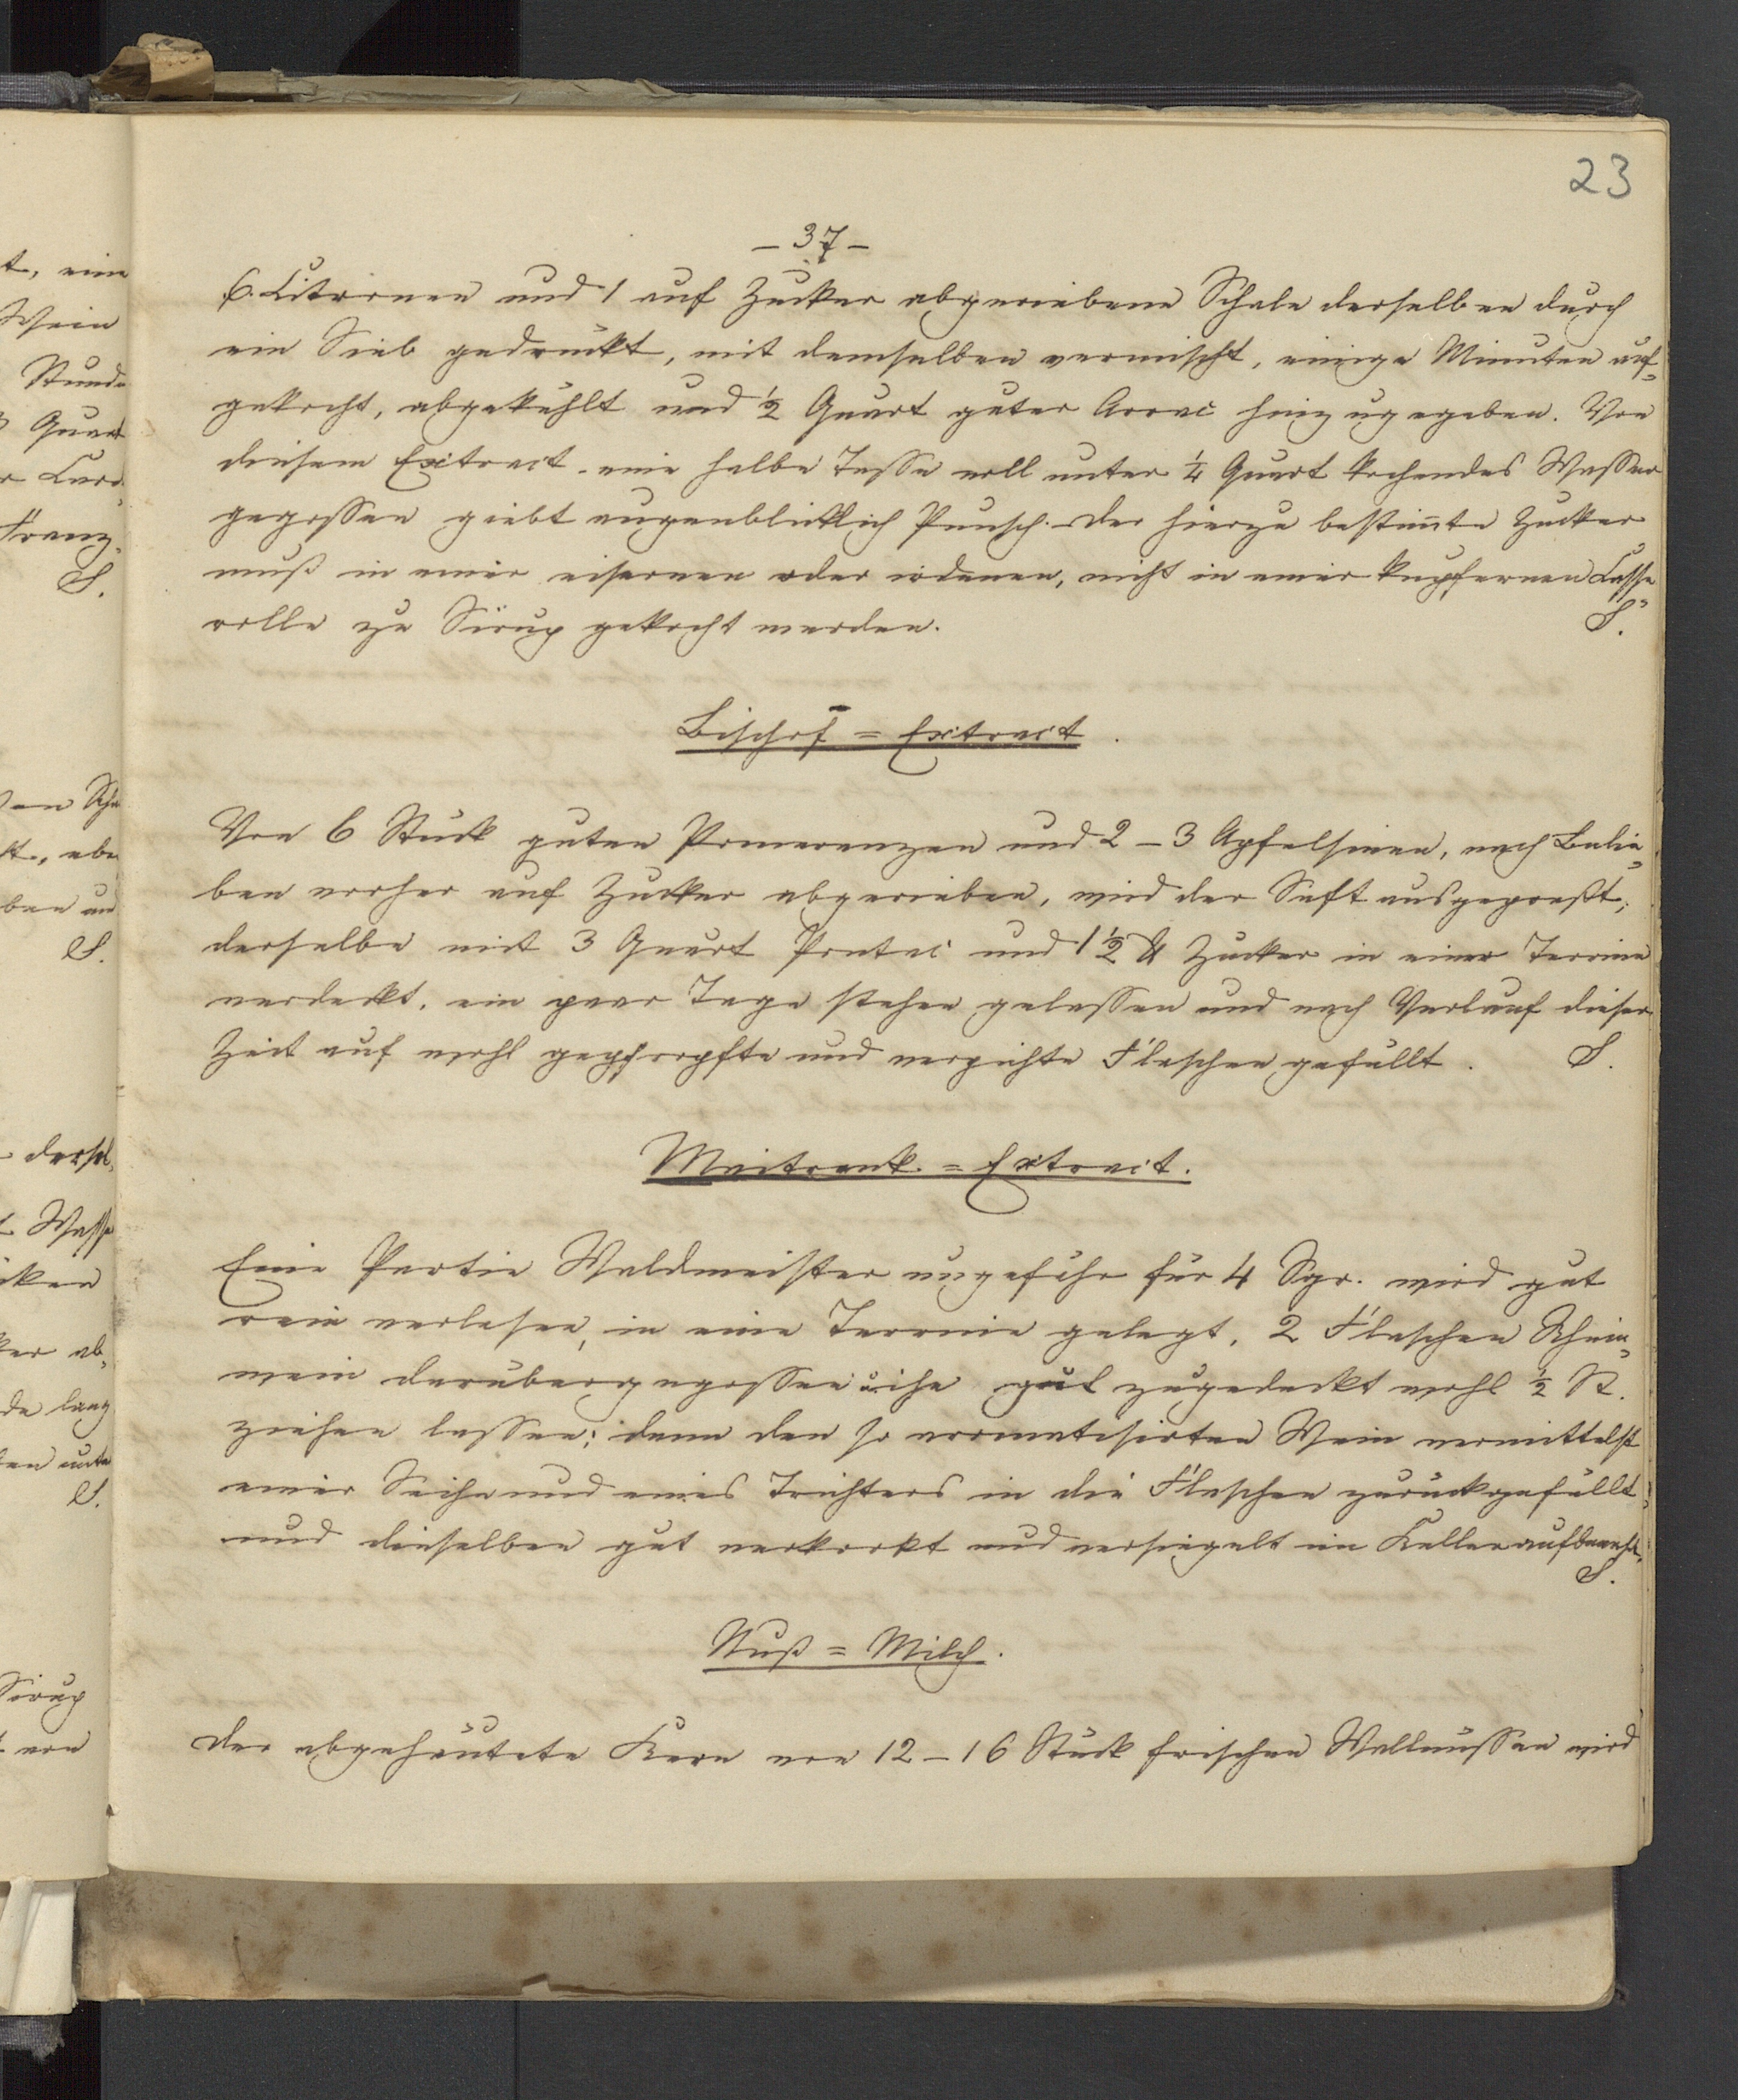 23
- 37 -
6 Citronen und 1 auf Zucker abgeriebene Schale derselben durch
ein Sieb gedrückt, mit demselben vermischt, einige Minuten auf=
gekocht, abgekühlt und ½ Quart guter Arrac hinzugegeben. Von
diesem Extract eine halbe Tasse voll unter ¼ Quart kochendes Wasser
gegossen giebt augenblicklich Punsch. Der hierzu bestimmte Zucker
muß in einer eisernen oder irdenen, nicht in einer kupfernen Casse=
rolle zu Sirup gekocht werden. S.
Bischof = Extract.
Von 6 Stück guten Pomeranzen und 2 - 3 Apfelsinen, nach Belie=
ben vorher auf Zucker abgerieben, wird der Saft ausgepreßt;
derselbe mit 3 Quart Pontac und 1½ ℔ Zucker in einer Terrine
verdeckt, ein paar Tage stehen gelassen und nach Verlauf dieser
Zeit auf wohl gepfropfte und verpichte Flaschen gefüllt. S.
Maitrank = Extract.
Eine Partie Waldmeister ungefähr für 4 Sgr. wird gut
rein verlesen, in eine Terrine gelegt, 2 Flaschen Rhein=
wein darübergegossen u. ihn gut zugedeckt wohl ½ St.
ziehen lassen; dann den so arromatisirten Wein vermittelst
einer Seihe und eines Trichters in die Flaschen zurückgefüllt
und dieselben gut verkorkt und versiegelt im Keller aufbewahrt.
S.
Nuß = Milch.
Der abgehäutete Kern von 12 - 16 Stück frischen Wallnüssen wird